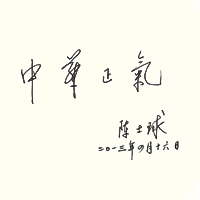 中華正氣
陈士球
二〇一三年四月十六日